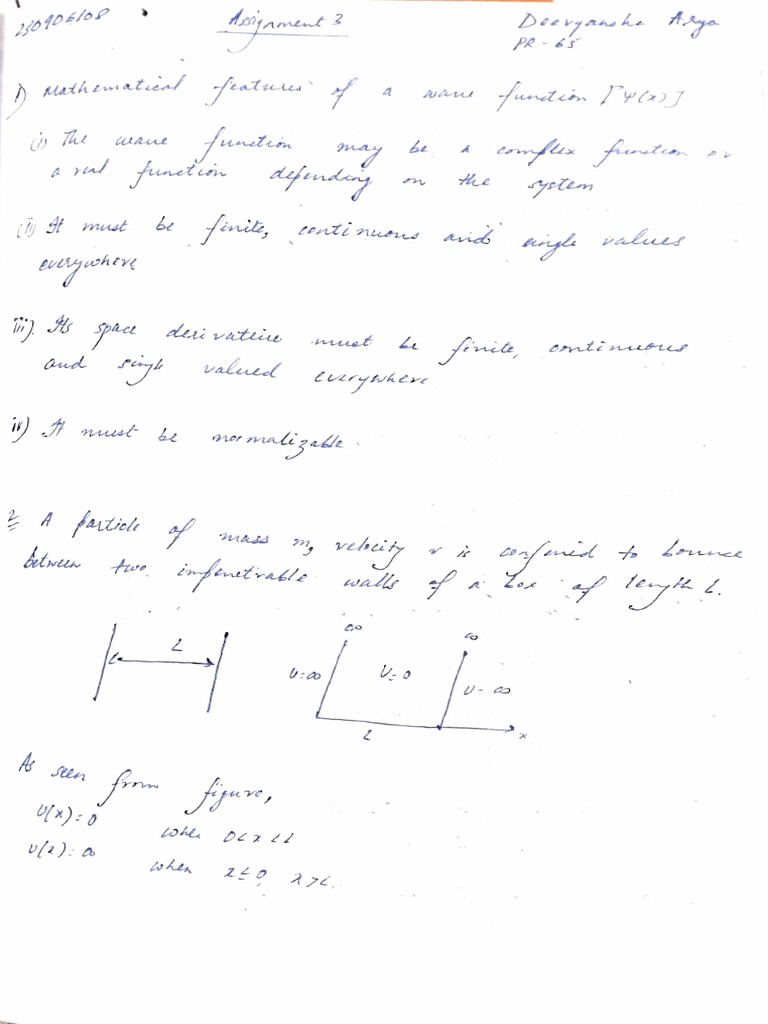 230906108
Assignment 3
Deevyanshu Arya
PR - 65
1) Mathematical features of a wave function [Ψ(x)]
(i) The wave function may be a complex function or
a real function depending on the system
(ii) It must be finite, continuous and single values
everywhere
iii). Its space derivative must be finite, continuous
and single valued everywhere
iv) It must be normalizable.
2 A particle of mass m, velocity v is confined to bounce
between two impenetrable walls of a box of length L.
L
∞
∞
U=∞
U=0
U=∞
L
x
As seen from figure,
U(x)=0 when 0<x<L
U(x)=∞ when x≤0, x>L.